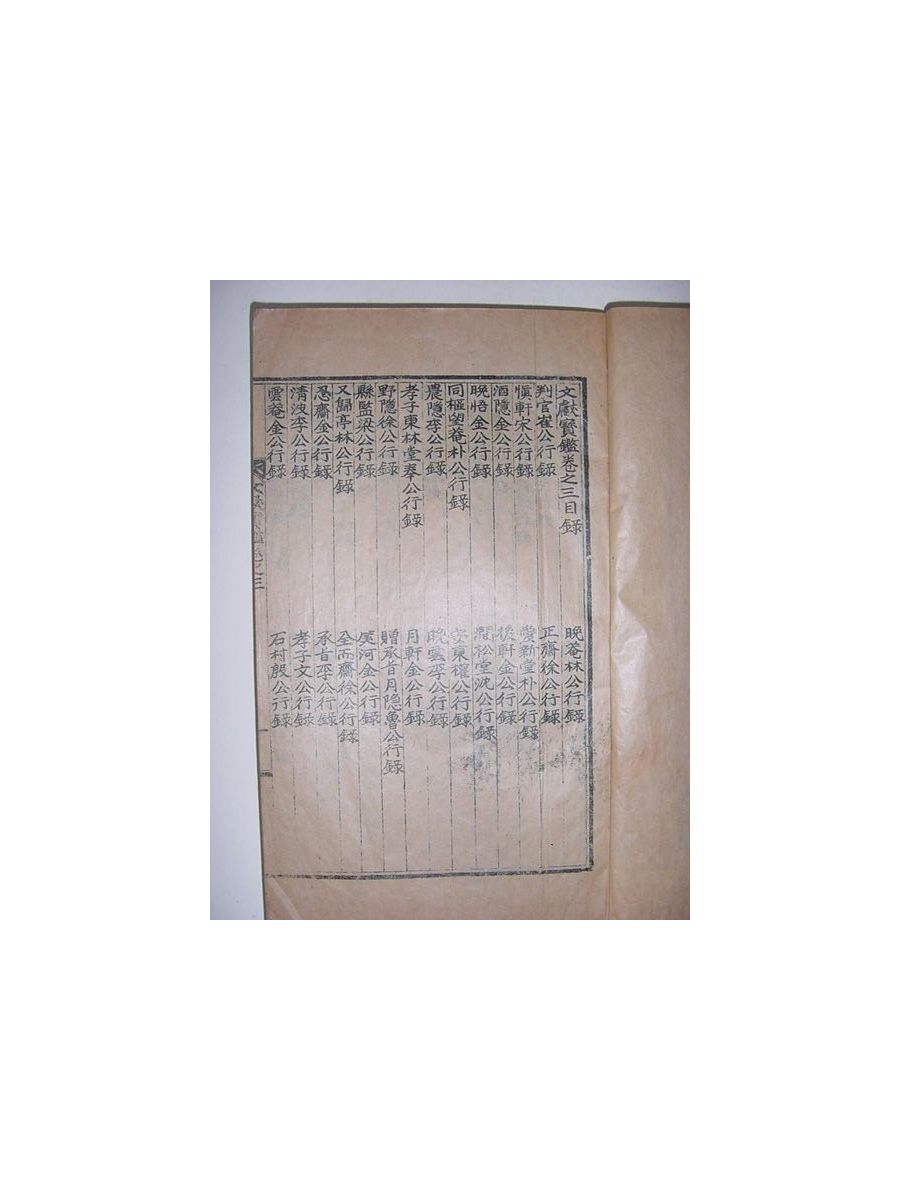 文獻寶鑑卷之三目錄
判官崔公行錄
晚菴林公行錄
愼軒宋公行錄
正齋徐公行錄
酒隱金公行錄
愛新堂朴公行錄
晚悟金公行錄
後軒金公行錄
同樞朴公行錄
松堂沈公行錄
農隱李公行錄
安東權公行錄
孝子東林堂奉公行錄
晚雲李公行錄
野隱徐公行錄
月軒金公行錄
縣監梁公行錄
贈承旨月隱魯公行錄
又歸亭林公行錄
笑河金公行錄
忍齋金公行錄
全而齋徐公行錄
淸波李公行錄
承旨李公行錄
雲菴金公行錄
孝子文公行錄
石村殷公行錄
卷之三
一